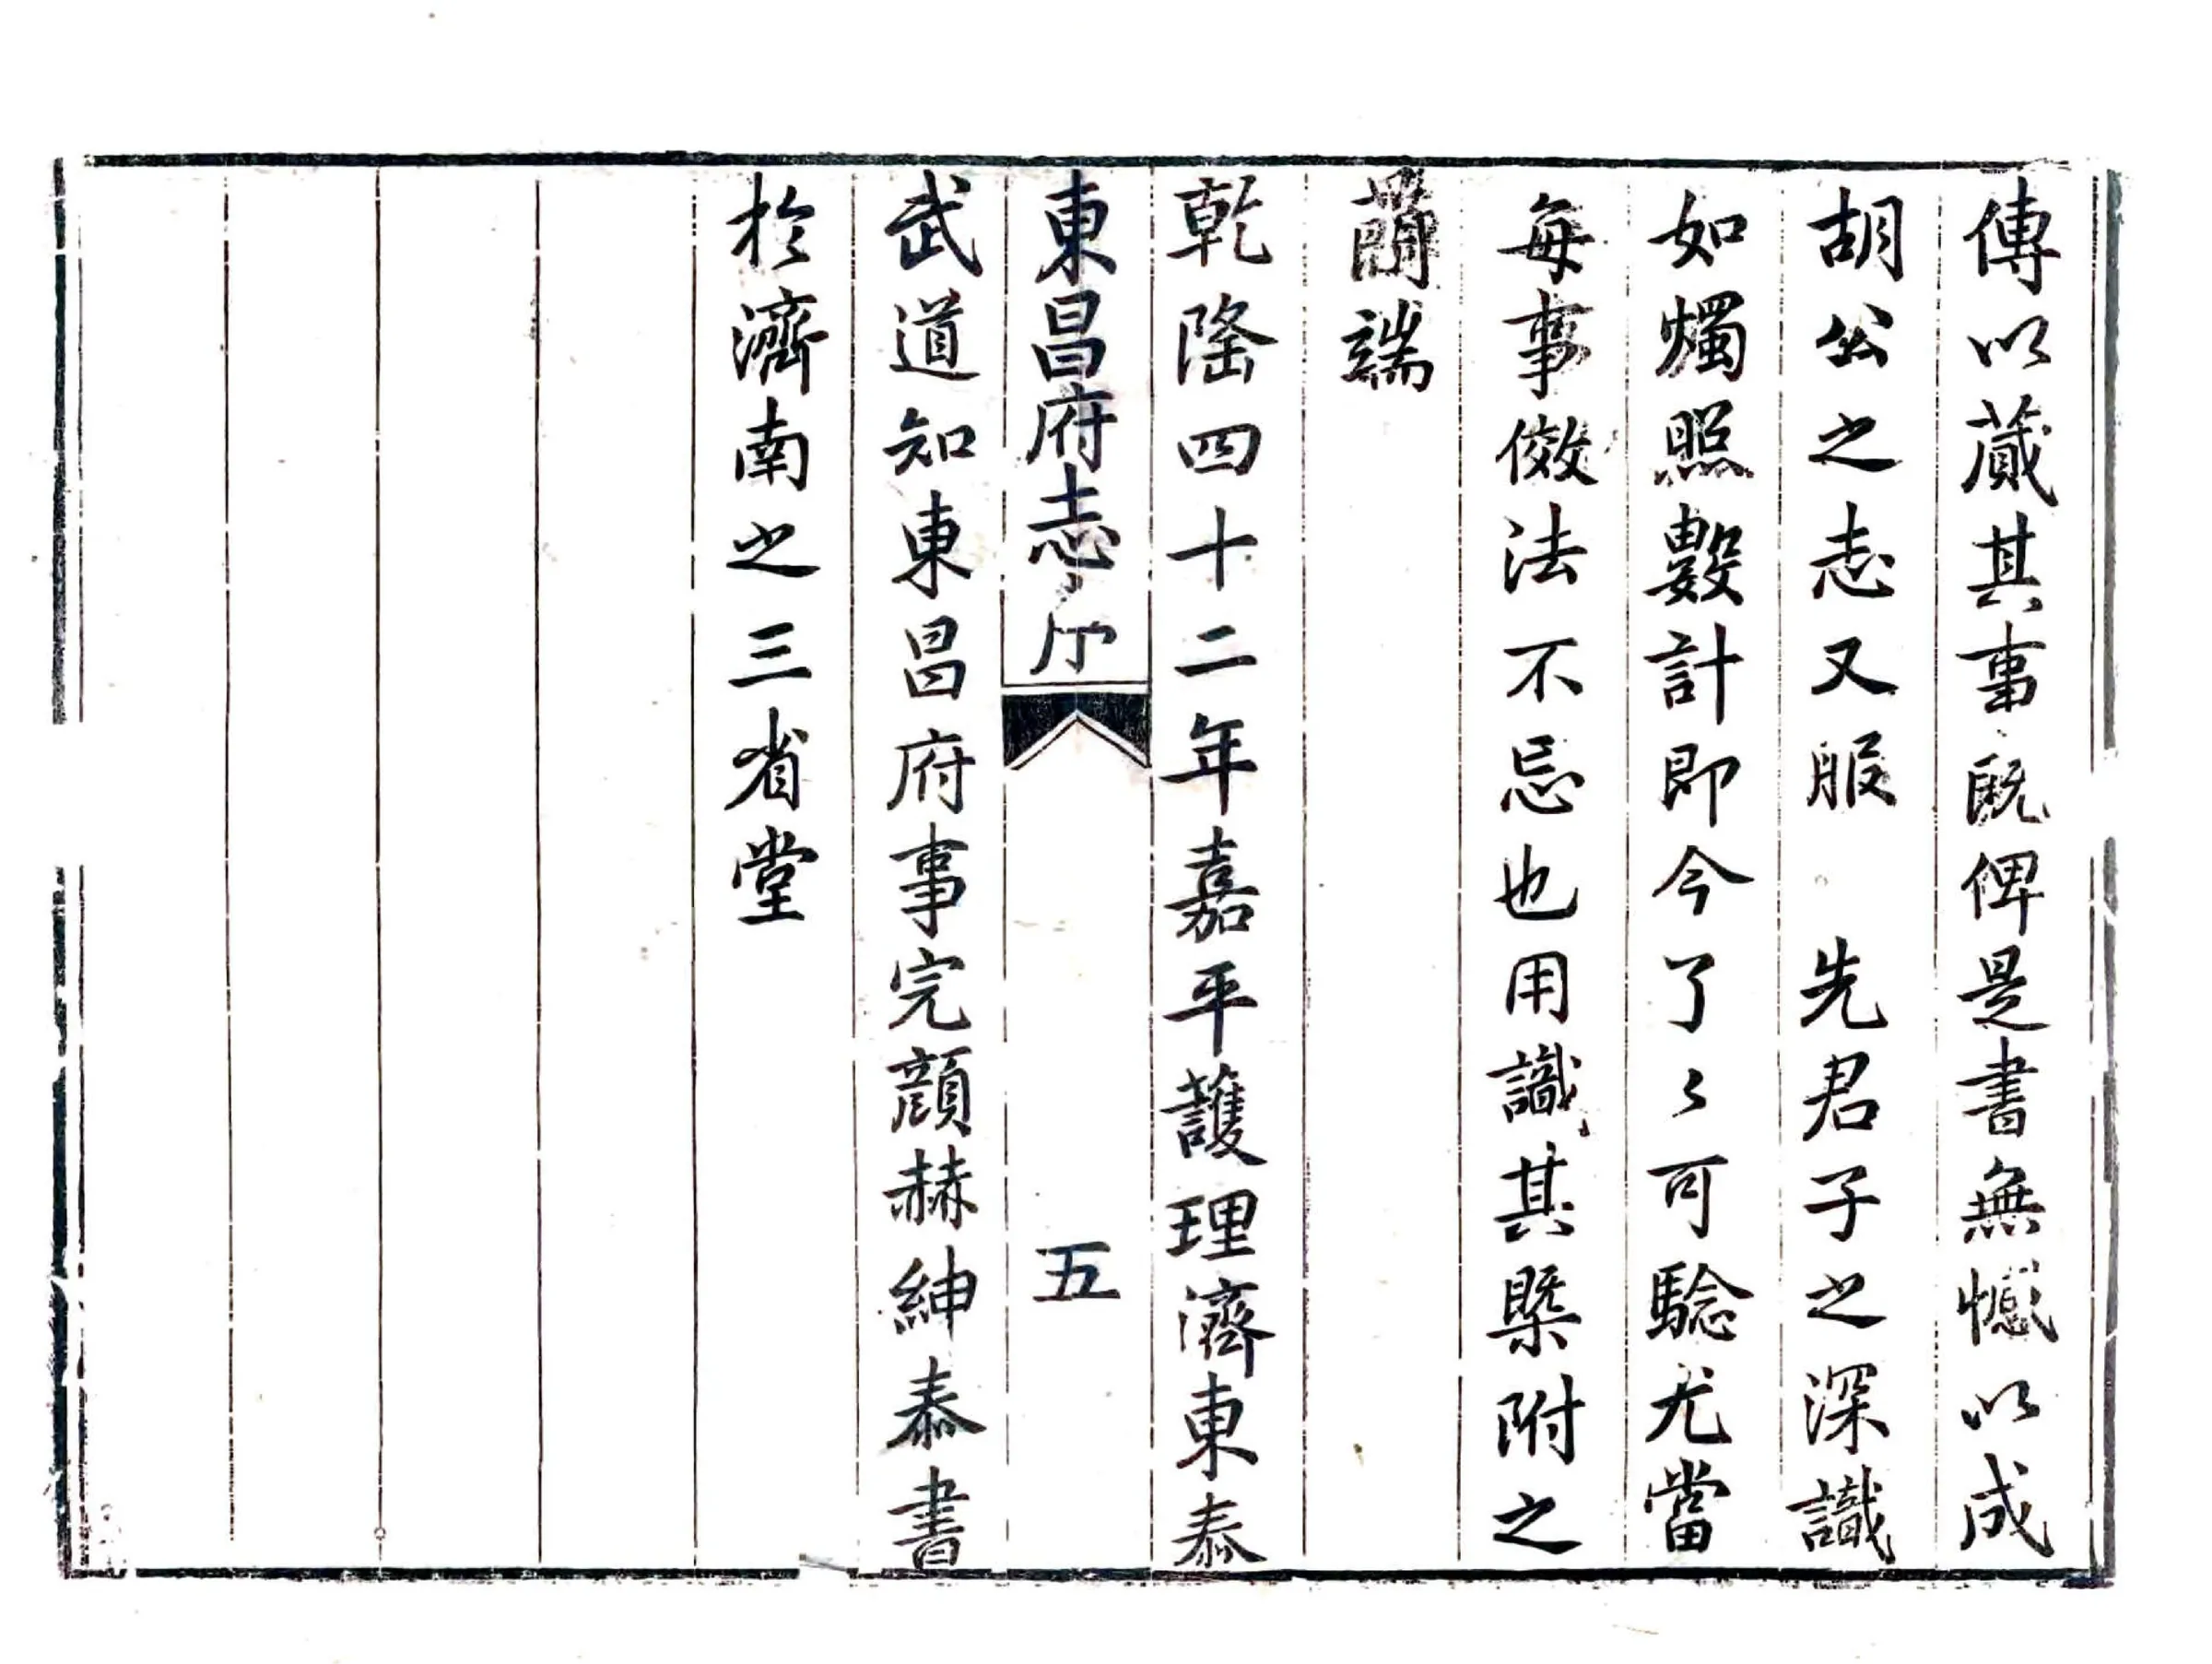 傳以蕆其事既俾是書無憾以成
胡公之志又服 先君子之深識
如燭照數計即今了〻可驗尤當
每事儆法不忘也用識其槩附之
蕳端
乾隆四十二年嘉平護理濟東泰
東昌府志 序 五
武道知東昌府事完顔赫紳泰書
於濟南之三省堂